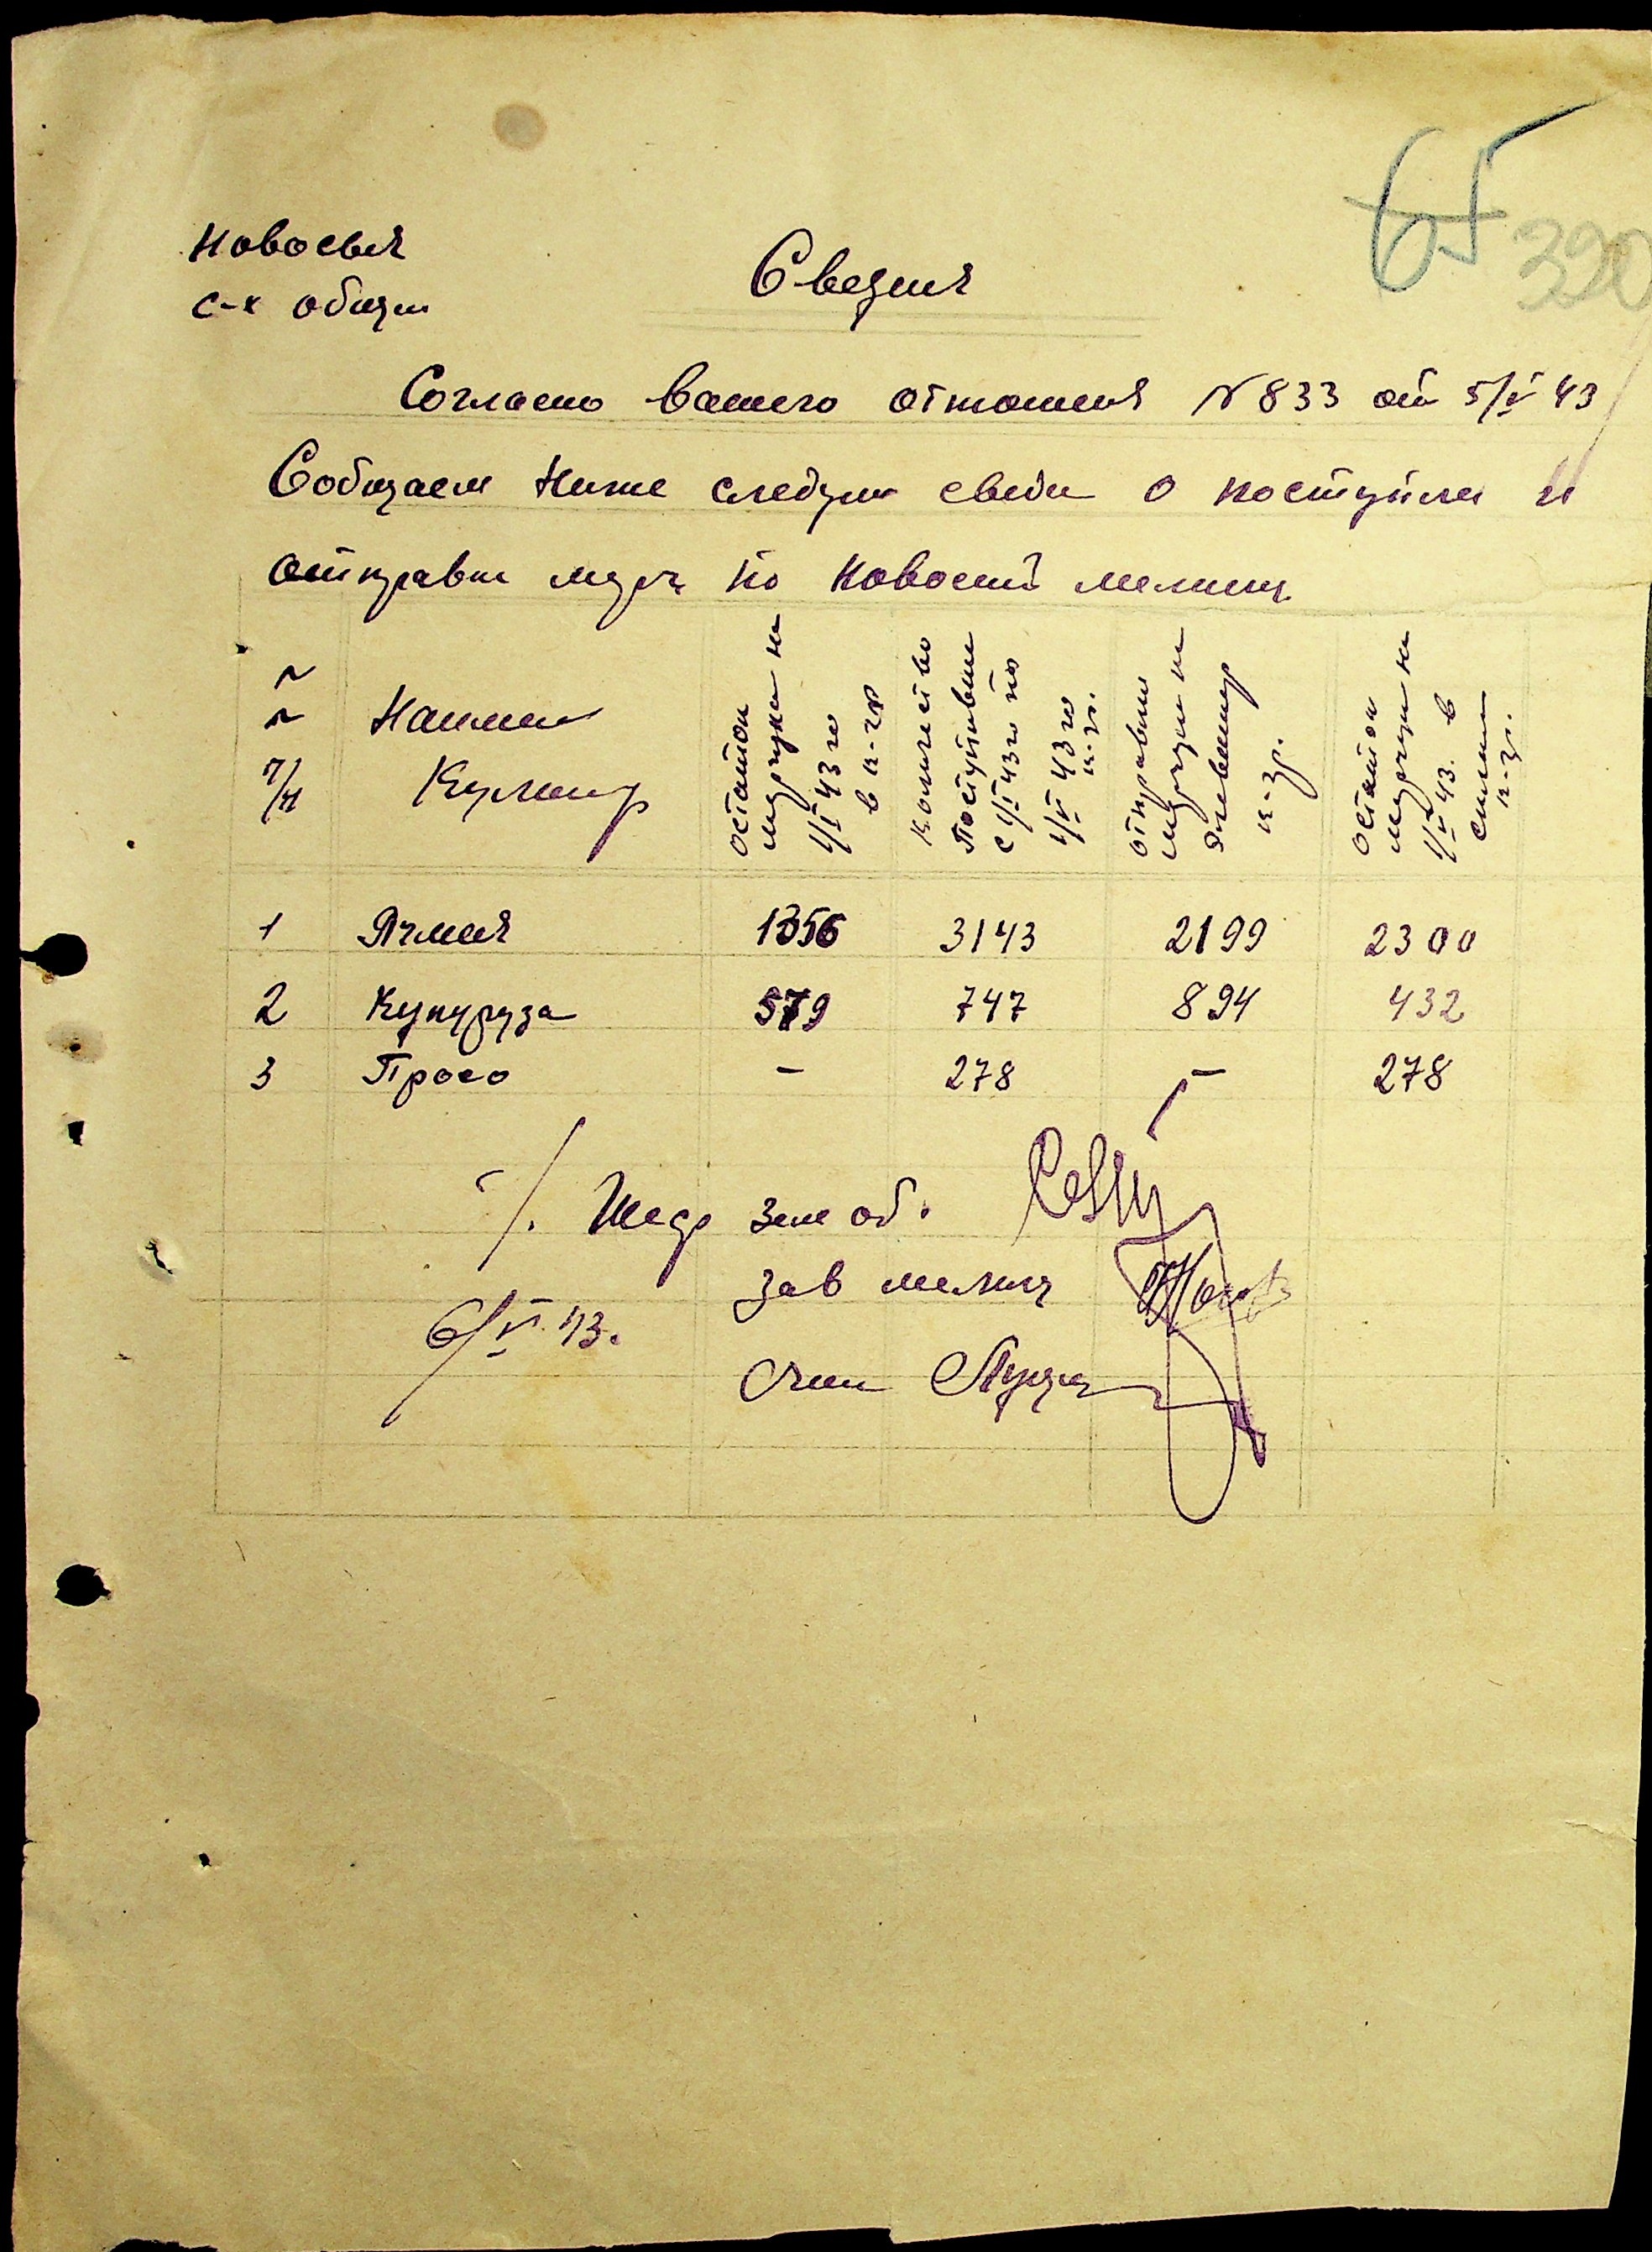 65
390
Новоевия
с-х общи
Сведия
Согласно вашего отношеня № 833 от 5/V 43
Сообщаем Ниже следущ сведи о поступлен и
отправки мерч по Новоевий мелниц
№
№
п/п
Наимен
Культур
остаток
мерчука на
1/V 43 го
в к-гр
количество
Поступивше
с 1/V 43 го по
1/VI 43 го
к-гр.
отправлин
мерчуки на
элеватор
к-гр.
остаток
мерчуки на
1/VI 43. в
к-гр.
1 Ячмень 1356 3143 2199 2300
2 Кукуруза 579 747 894 432
3 Просо — 278 — 278
Пед зем об.
зав мелниц
6/VI 43.